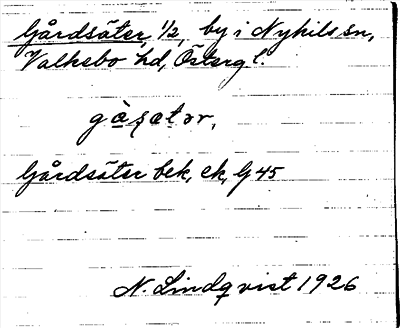 Gårdsäter 1/2, by i Nykils sn,
Valkebo hd, Österg l.
gàʂætər,
Gårdsäter bek, ek, G 45
N. Lindqvist 1926